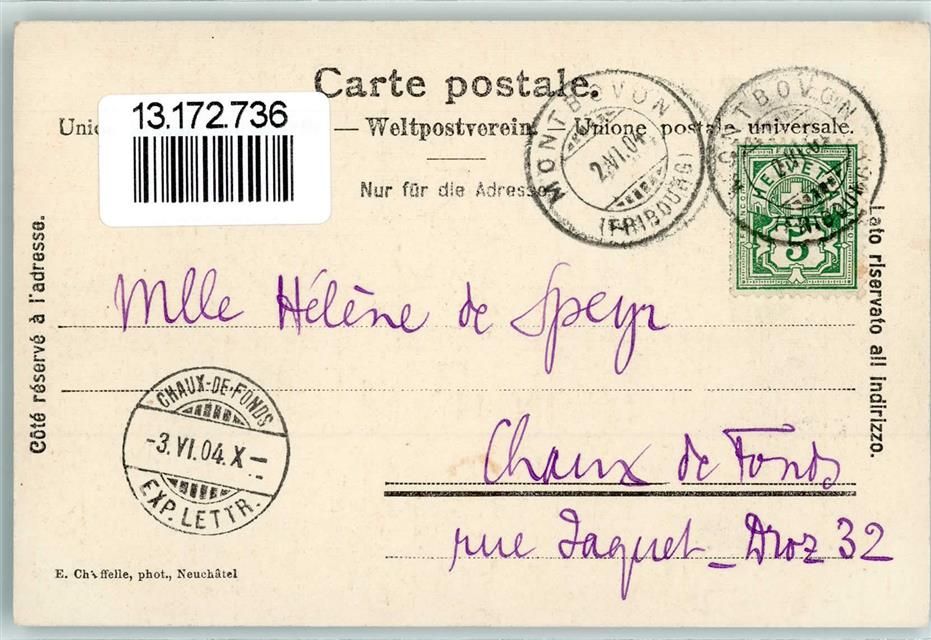 Carte postale.
13.172.736
— Weltpostverein. — Unione postale universale.
Nur für die Adresse
MONTBOVON
2.VI.04
(FRIBOURG)
MONTBOVON
(FRIBOURG)
HELVETIA
FRANCO
5
Côté réservé à l'adresse.
Lato riservato all indirizzo.
Mlle Hélène de Speyr
CHAUX-DE-FONDS
-3.VI.04.X-
EXP. LETTR.
Chaux de Fonds
rue Jaquet-Droz 32
E. Chiffelle, phot., Neuchâtel